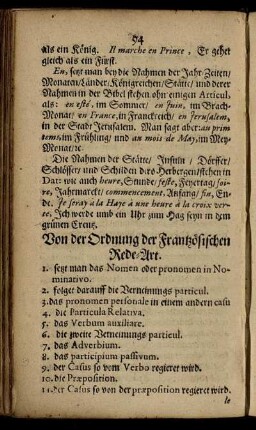 94
als ein König. Il marche en Prince, Er gehet
gleich als ein Fürst.
En, setzt man bey die Nahmen der Jahr-Zeiten/
Monaten/Länder/Königreichen/Stätte/und derer
Nahmen in der Bibel stehen ohn einigen Articul,
als: en esté, im Sommer/ en Juin, im Brach-
Monat/ en France, in Franckreich/ en Jerusalem,
in der Stadt Jerusalem. Man sagt aber: au prim
tems, im Frühling/ und au mois de May, im Mey-
Monat/ꝛc.
Die Nahmen der Stätte/ Insuln / Dörffer/
Schlösser/ und Schilden der Herbergen/stehen in
Dat: wie auch heure, Stunde/ feste, Feyertag/ foi-
re, Jahrmarckt/ commencement, Anfang/ fin, En-
de. Je seray à la Haye à une heure à la croix ver-
te, Ich werde umb ein Uhr zum Hag seyn in dem
grünen Creutz.
Von der Ordnung der Frantzösischen
Rede-Art.
1. setzt man das Nomen oder pronomen in No-
minativo.
2. folget darauff die Verneinungs particul.
3. das pronomen personale in einem andern casu
4. die Particula Relativa.
5. das Verbum auxiliare.
6. die zweite Verneinungs particul.
7. das Adverbium.
8. das participium passivum.
9. der Casus so vom Verbo regieret wird.
10. die Præposition.
11. der Casus so von der præposition regieret wird.